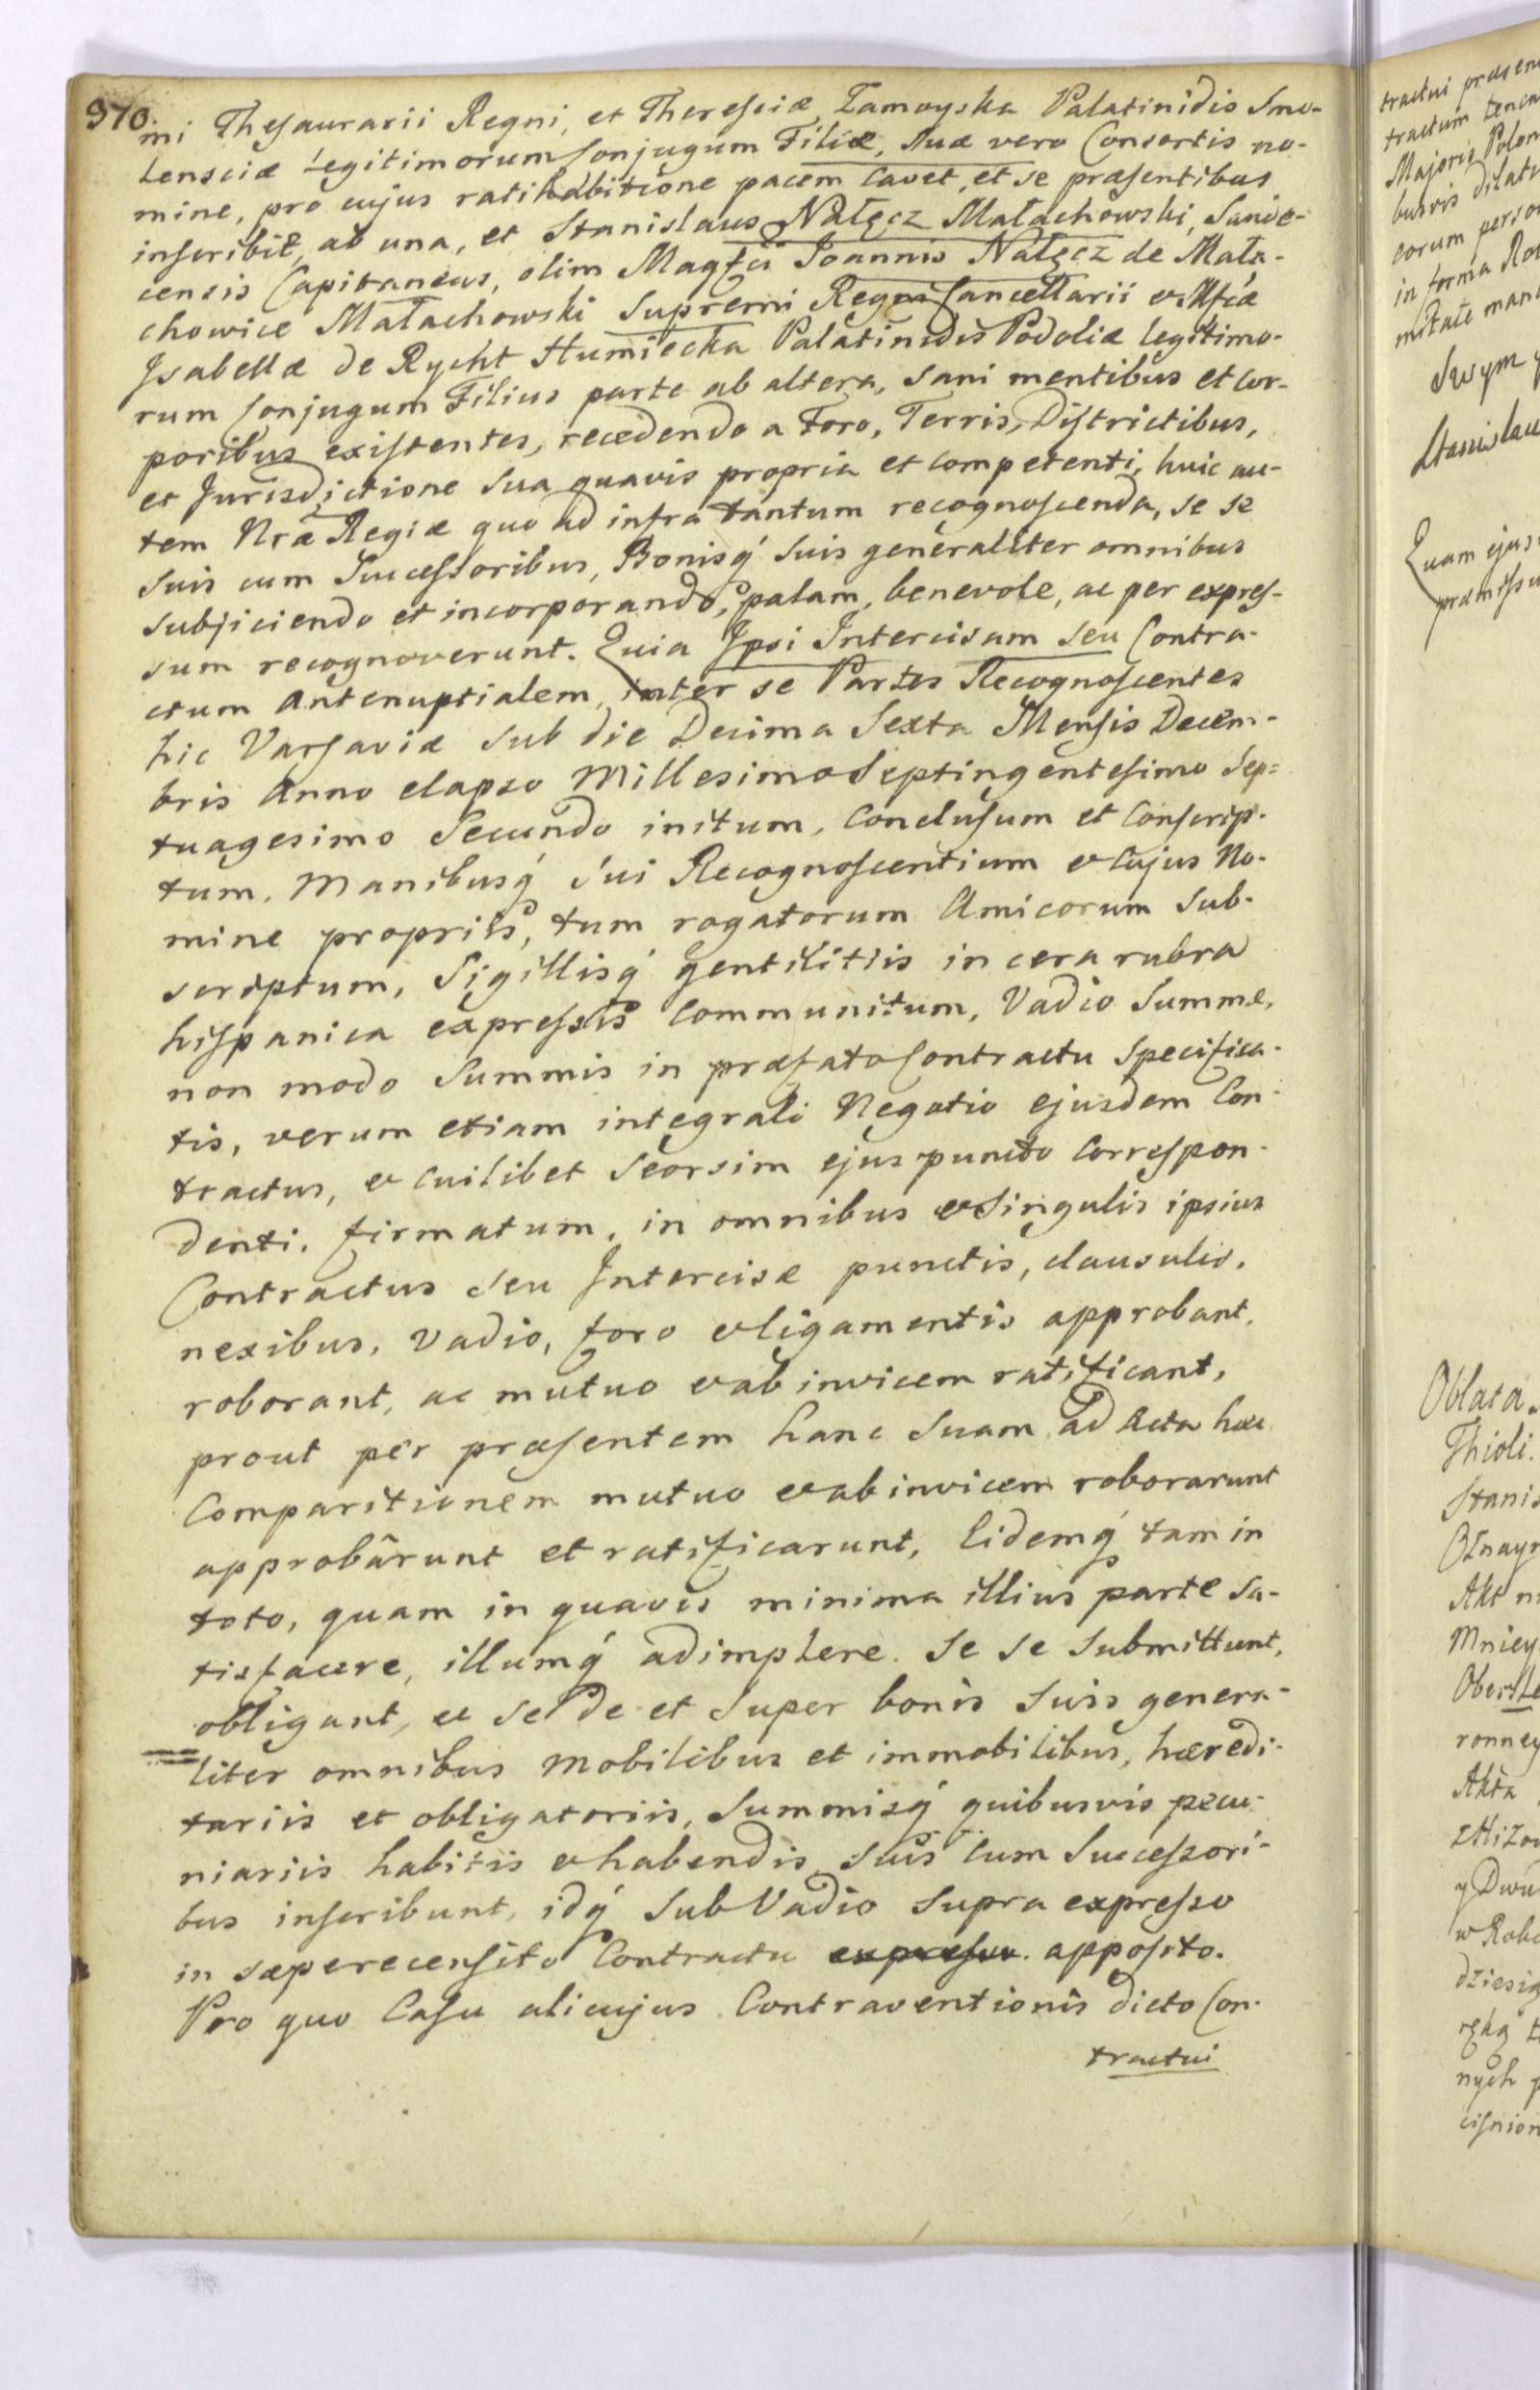 970.
mi Thesaurarii Regni, et Theresciæ Zamoyska Palatinidis Smo-
lensciæ Legitimorum Conjugum Filiæ, suæ vero Consortis no-
mine, pro cujus ratihabitione pacem cavet, et se præsentibus
inscribit, ab una, et Stanislaus Nałęcz Małachowski, Sande-
censis Capitaneus, olim Magfci Joannis Nałęcz de Mała-
chowice Małachowski Supremi Regni Cancellarii et
Isabellæ de Rycht Humiecka Palatinidis Podoliæ legitimo-
rum Conjugum Filius parte ab altera, sani mentibus et cor-
poribus existentes, recedendo a Foro, Terris, Districtibus,
et Jurisdictione sua quavis propria et competenti, huic au-
tem Nræ Regiæ quo ad infra tantum recognoscenda, se se
suis cum Successoribus, Bonisq́ suis generaliter omnibus
subjiciendo et incorporando, palam, benevole, ac per expres-
sum recognoverunt. Quia Ipsi Intercisam seu Contra-
ctum Antenuptialem, inter se Partes Recognoscentes
hic Varsaviæ sub die Decima Sexta Mensis Decem-
bris Anno elapso Millesimo Septingentesimo Sep=
tuagesimo Secundo initum, conclusum et conscrip-
tum. Manibusq́ sui Recognoscentium et cujus No-
mine propriis, tum rogatorum Amicorum sub-
scriptum, Sigillisq́ gentilitiis in cera rubra
hispanica expressis communitum, Vadio Summæ,
non modo Summis in præfato Contractu specifica-
tis, verum etiam integrali Negotio ejusdem Con-
tractus, et cuilibet seorsim ejus puncto correspon-
denti, firmatum, in omnibus et singulis ipsius
Contractus seu Intercisæ punctis, clausulis,
nexibus, vadio, foro et ligamentis approbant,
roborant, ac mutuo et ab invicem ratificant,
prout per præsentem hanc suam ad Acta hæc
Comparitionem mutuo et ab invicem roborarunt
approbârunt et ratificarunt, Eidemq́ tam in
toto, quam in quavis minima illius parte sa-
tisfacere, illumq́ adimplere. Se se submittunt,
obligant, et se de et super bonis suis genera-
liter omnibus mobilibus et immobilibus, hæredi-
tariis et obligatoriis, Summisq́ quibusvis pecu-
niariis habitis et habendis, suis cum Successori-
bus inscribunt, idq́ sub Vadio supra expresso
in sæperecensito Contractu expresso. apposito.
Pro quo Casu alicujus Contraventionis dicto Con-
tractui
tractui
tractum
Majoris Polon
busvis
eorum
in forma
Stanislau
Quam ejus
Oblata
Thioli.
Stanis
Akt
Mniey
Akta